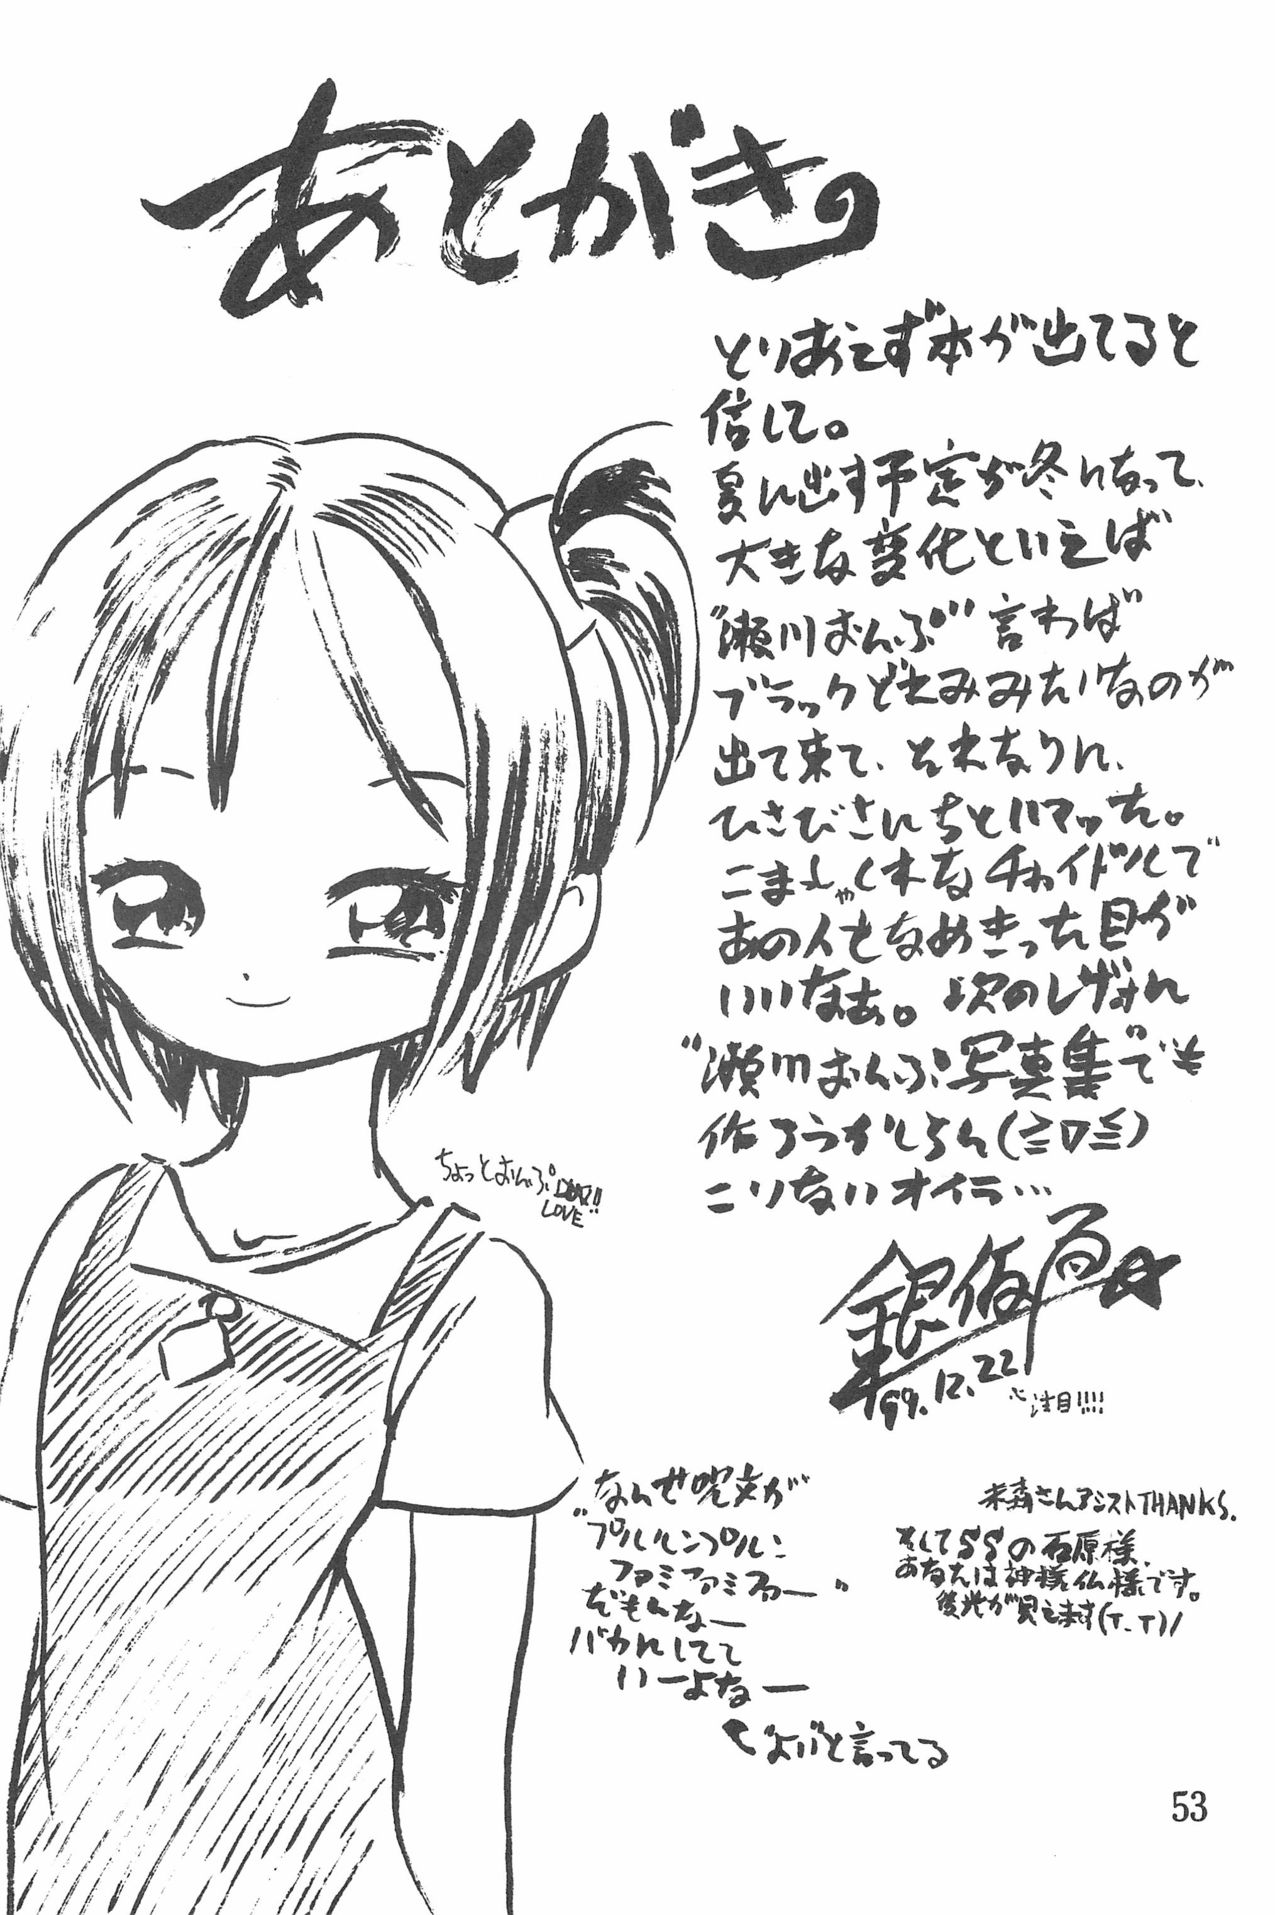 あとがき。
とりあえず本が出てると
信じて。
夏に出す予定が冬になって、
大きな変化といえば
"瀬川おんぷ" 言わば
ブラックどれみみたいなのが
出て来て、それなりに、
ひさびさにちとハマッた。
こましゃくれなチャイドルで
あの人もなめきった目が
いいなあ。次のレヴォに
"瀬川おんぷ写真集"でも
作ろうかしらん(≧▽≦)
こりないオイラ…
ちょっとおんぷ
LOVE
銀
'99.12.22
注目!!!!
なんせ呪文が
"プルルンプルン
ファミファミファー"
だもんなー
バカにしてて
いーよなー
米森さんアシストTHANKS.
そしてSSの石原様、
あなたは神様仏様です。
後光が見えます(T_T)/
と言ってる
53